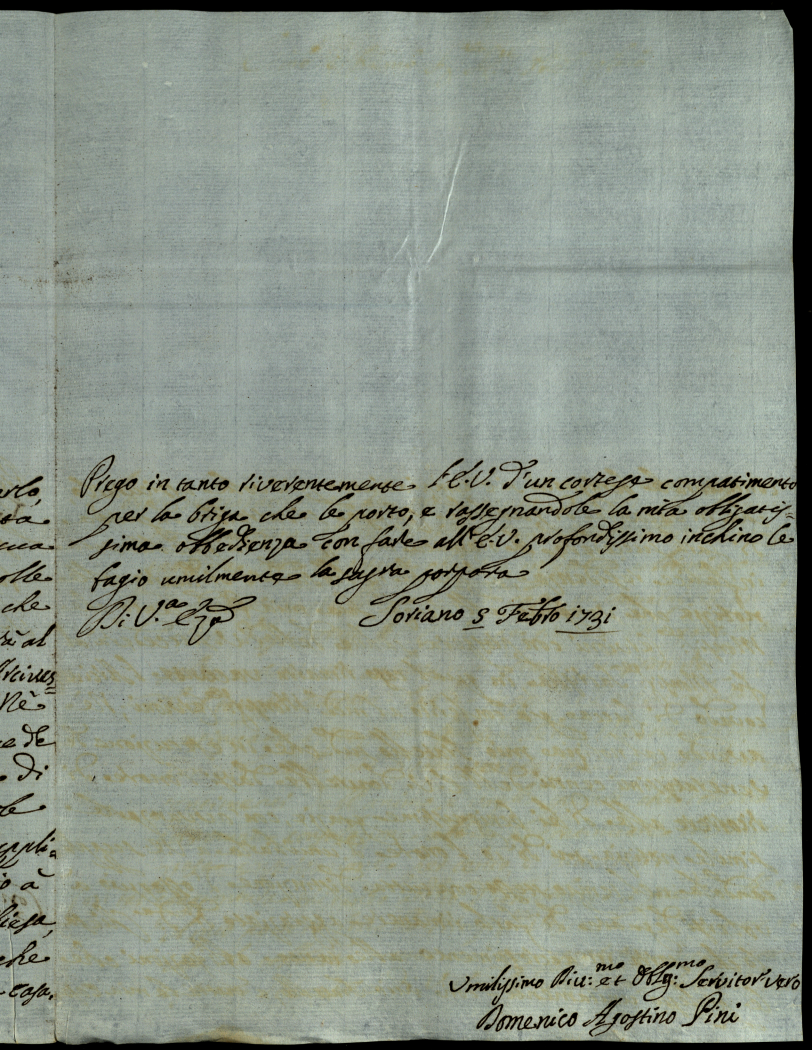 Prego in tanto riverentemente l'E.V. d'un cortese compatimento
per la briga che le porto, e rassegnandole la mia obligatis=
sima obbedienza con fare all'E.V. profondissimo inchino le
bagio umilmente la sagra porpora
Di V.ª Eza
Soriano 5 Febro 1731
Umilissimo Div:mo et Oblg:mo Servitor vero
Domenico Agostino Pini
che
al
Arcives=
Nè
e de
di
appli=
o à
che
casa.